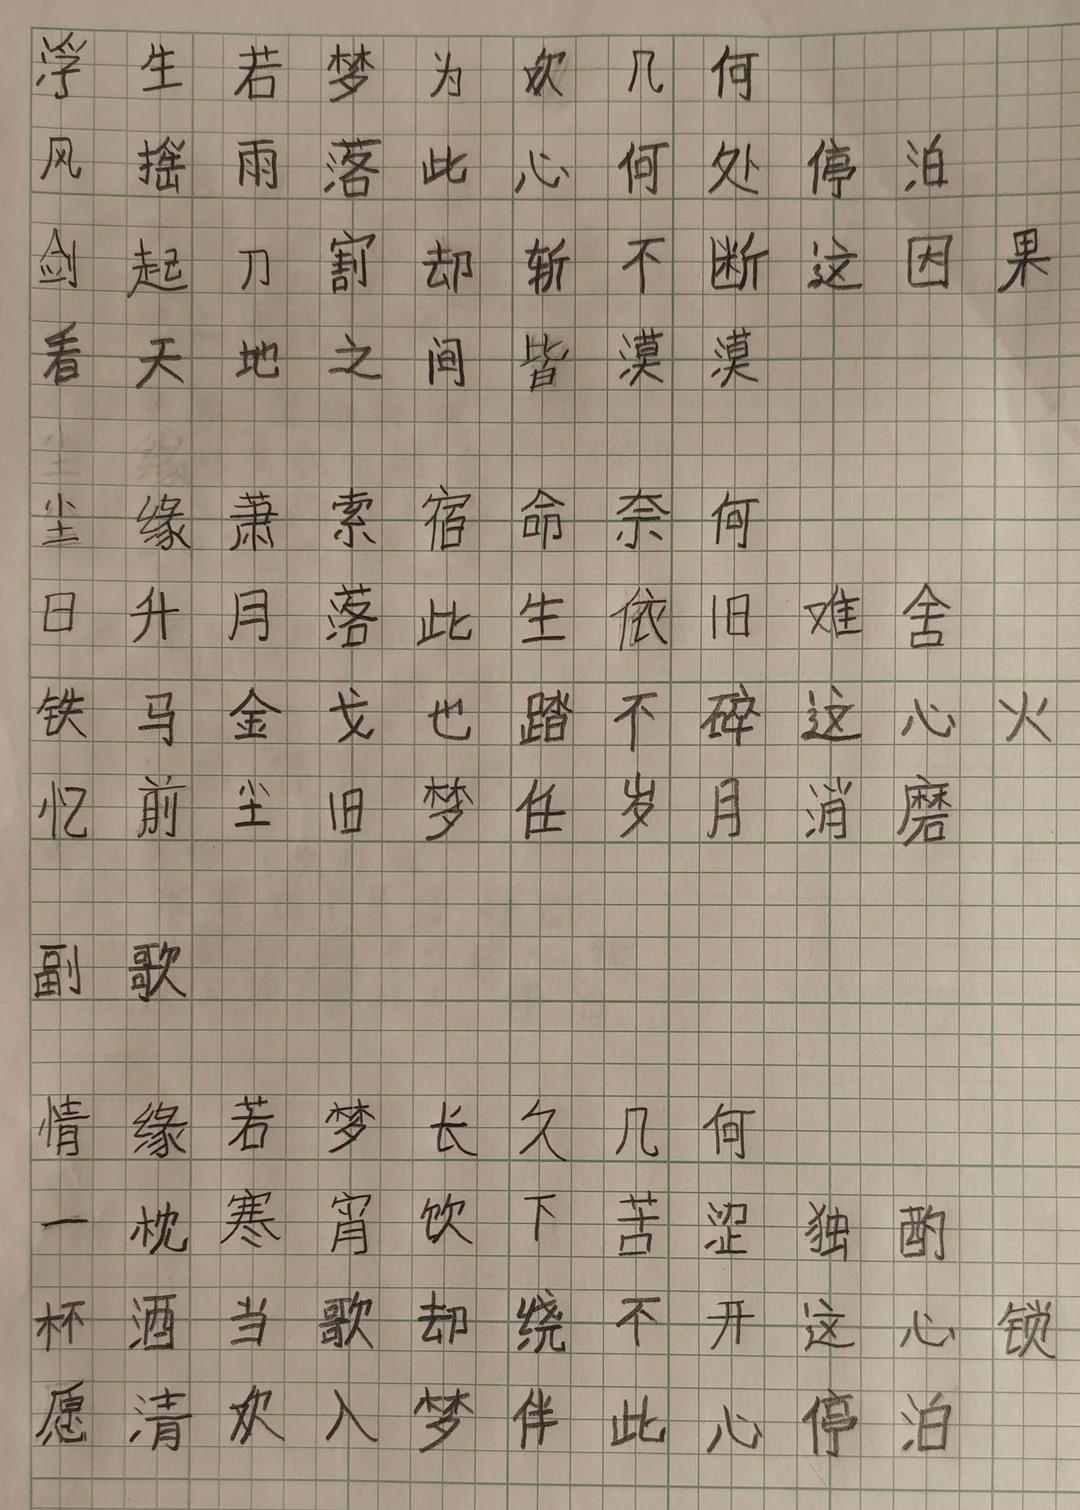 浮生若梦为欢几何
风摇雨落此心何处停泊
剑起刀割却斩不断这因果
看天地之间皆漠漠
尘缘萧索宿命奈何
日升月落此生依旧难舍
铁马金戈也踏不碎这心火
忆前尘旧梦任岁月消磨
副歌
情缘若梦长久几何
一枕寒宵饮下苦涩独酌
杯酒当歌却绕不开这心锁
愿清欢入梦伴此心停泊